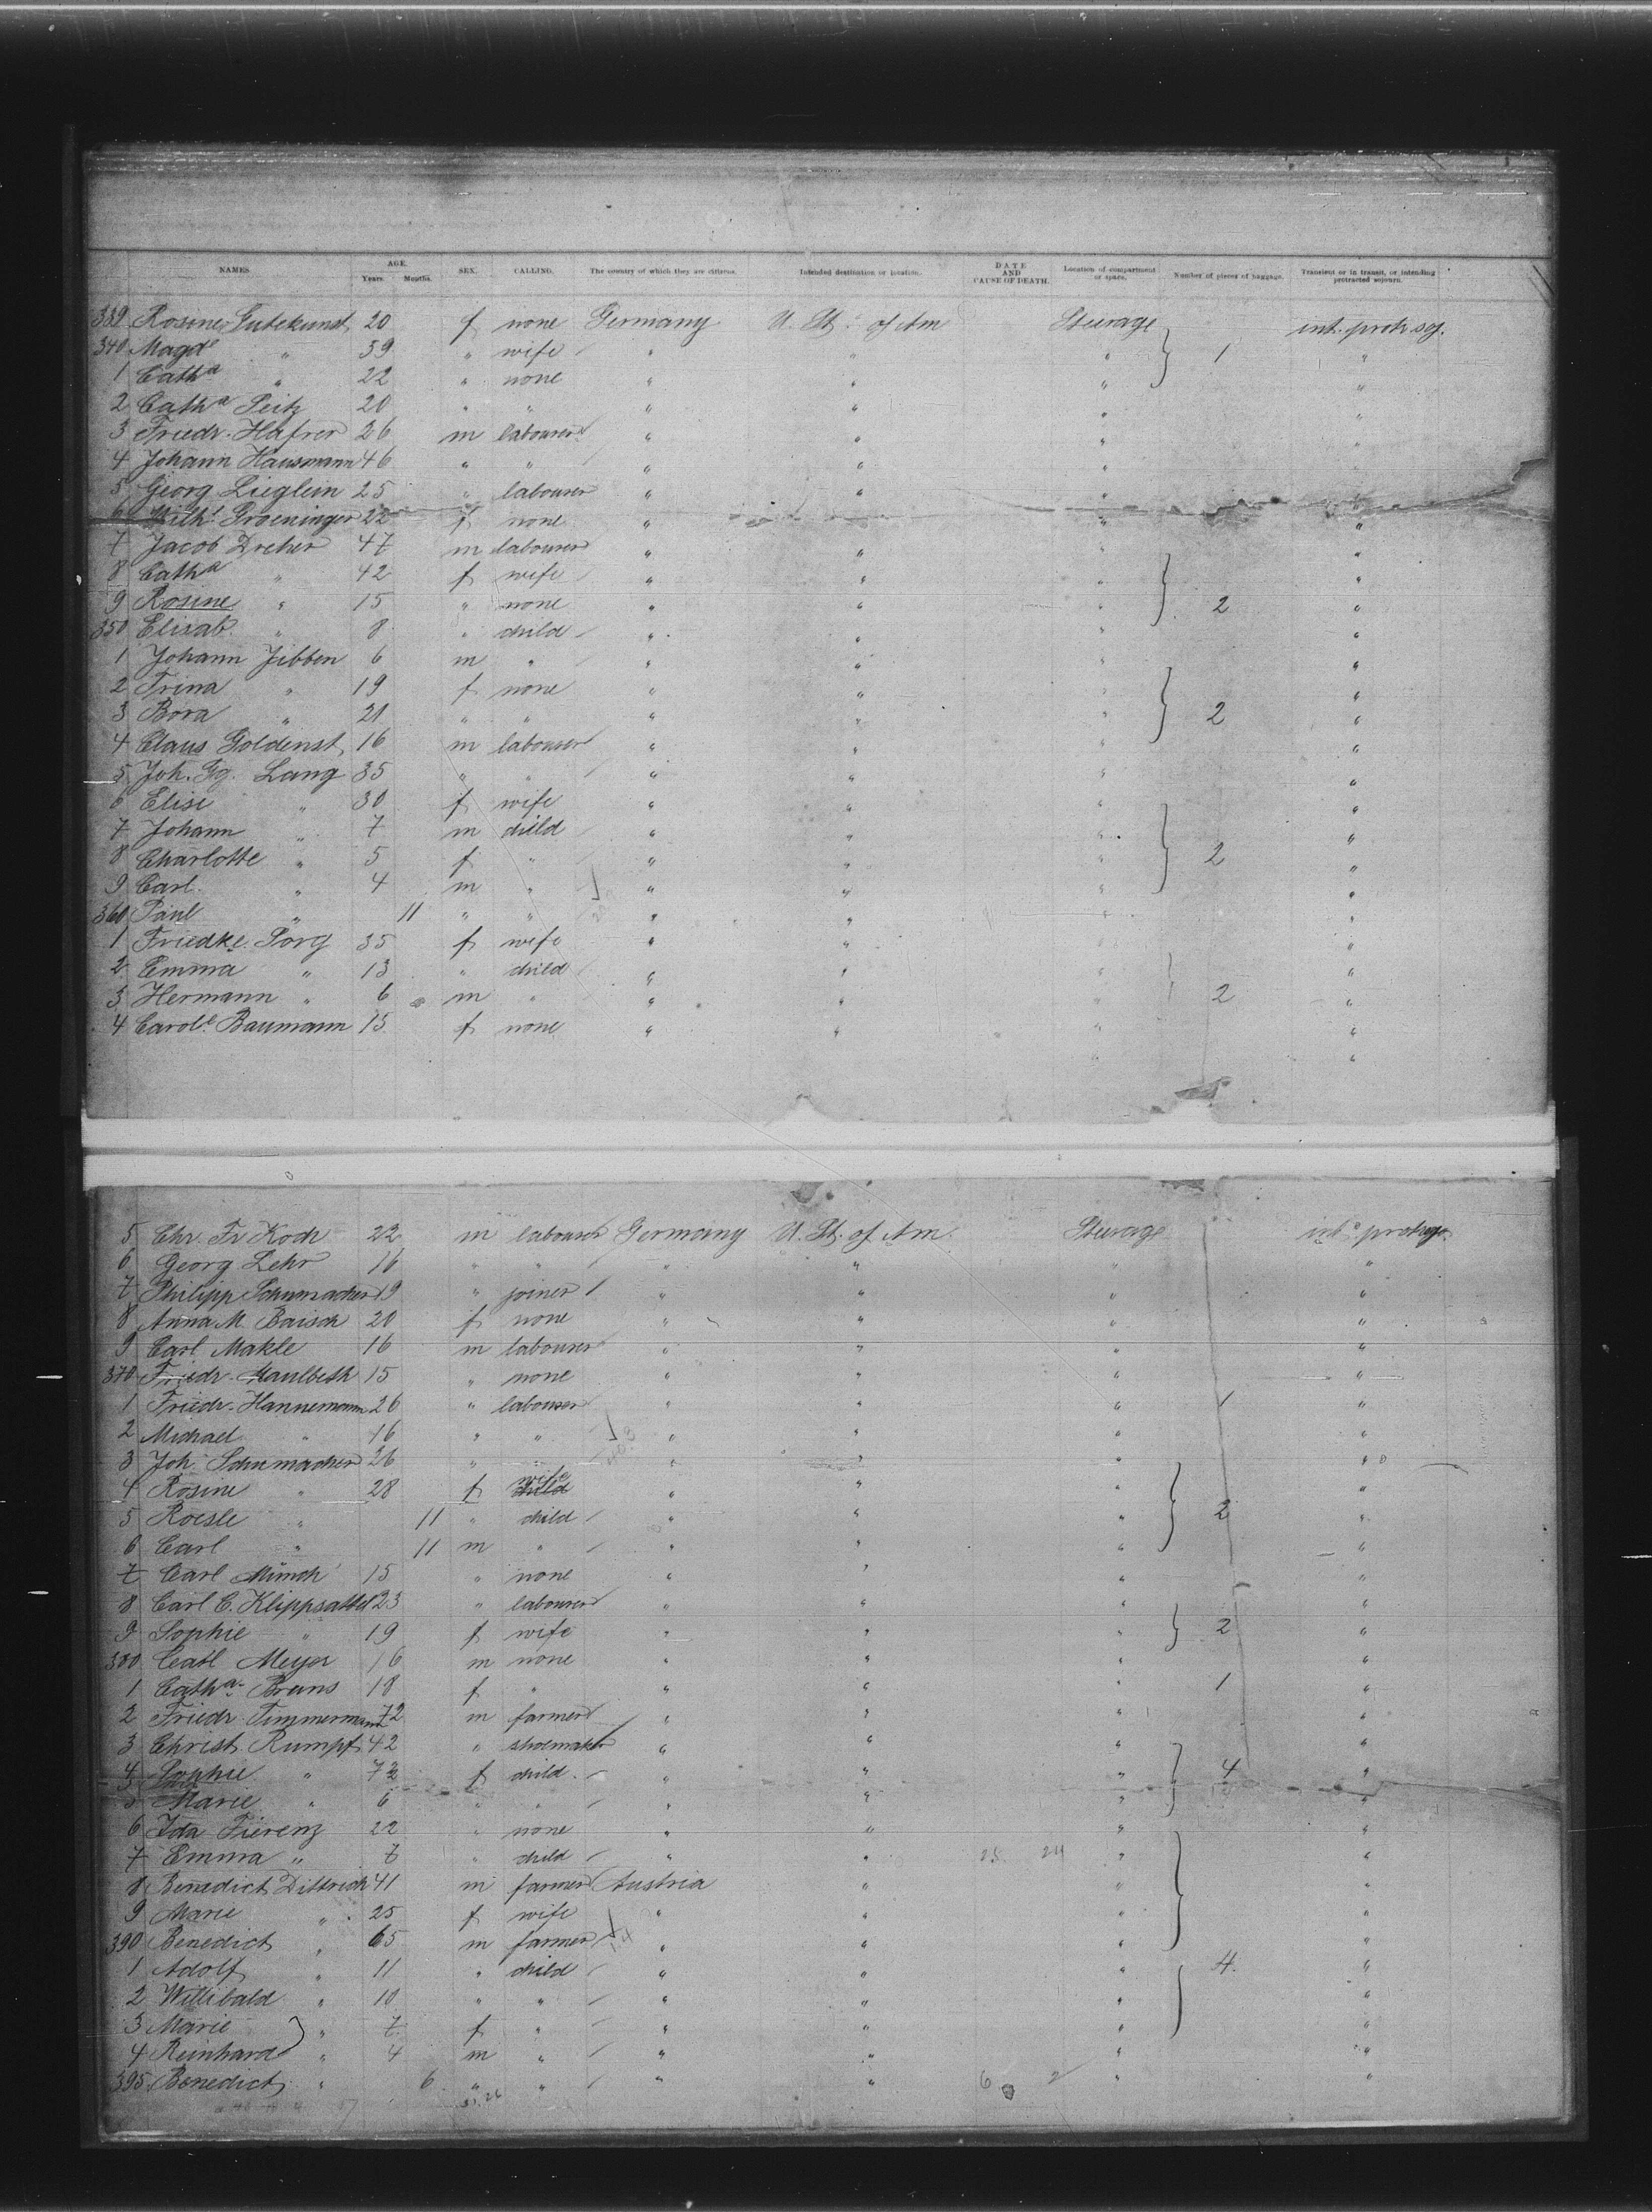 NAMES. AGE. Years. Months. SEX. CALLING. The country of which they are citizens. Intended destination or location. DATE AND CAUSE OF DEATH. Location of compartment or space. Number of pieces of baggage. Transient or in transit, or intending protracted sojourn.
339 Rosine Gutekunst 20 f none Germany U. St. of Am Steerage int. protr. soj.
340 Magde " 39 " wife " " " 1 "
1 Catha " 22 " none " " " "
2 Catha Seitz 20 " " " " " "
3 Friedr. Hafner 26 m labourer " " " "
4 Johann Hausmann 46 " " " " " "
5 Georg Lieglein 25 " labourer " " " "
6 Wilhe Groeninger 22 f none " " " "
7 Jacob Dreher 47 m labourer " " " "
8 Catha " 42 f wife " " " "
9 Rosine " 15 " none " " " 2 "
350 Elisab. " 8 " child " " " "
1 Johann Jibben 6 m " " " " "
2 Trina " 19 f none " " " "
3 Bora " 21 " " " " " 2 "
4 Claus Goldenst 16 m labourer " " " "
5 Joh. Gg. Lang 35 " " " " " "
6 Elise " 30 f wife " " " "
7 Johann " 7 m child " " " "
8 Charlotte " 5 f " " " " 2 "
9 Carl " 4 m " " " " "
360 Paul " 11 " " " " " "
1 Friedke. Sorg 35 f wife " " " "
2 Emma " 13 " child " " " "
3 Hermann " 6 m " " " " 2 "
4 Carole Baumann 15 f none " " " "
5 Chr. Fr. Koch 22 m labourer Germany U. St. of Am. Steerage int. protr. soj.
6 Georg Lehr 16 " " " " " "
7 Philipp Schumacher 19 " joiner " " " "
8 Anna M. Baisch 20 f none " " " "
9 Carl Makle 16 m labourer " " " "
370 Friedr. Maulbeth 15 " none " " " "
1 Friedr. Hannemann 26 " labourer " " " 1 "
2 Michael " 16 " " " " " "
3 Joh. Schumacher 26 " " " " " "
4 Rosine " 28 f wife child " " " "
5 Roesle " 11 " child " " " 2 "
6 Carl " 11 m " " " " "
7 Carl Münch 15 " none " " " "
8 Carl C. Klippsattel 23 " labourer " " " "
9 Sophie " 19 f wife " " " 2 "
380 Carl Meyer 16 m none " " " "
1 Catha. Bruns 18 f " " " " 1 "
2 Friedr. Timmermann 72 m farmer " " " "
3 Christ. Rumpf 42 " shoemaker " " " "
4 Sophie " 7 f child " " " 4 "
5 Marie " 6 " " " " " "
6 Ida Fierenz 22 " none " " " "
7 Emma " 7 " child " " " "
8 Benedict Dittrich 41 m farmer Austria " " "
9 Marie " 25 f wife " " " "
390 Benedict " 65 m farmer " " " "
1 Adolf " 11 " child " " " 4 "
2 Willibald " 10 " " " " " "
3 Marie " 7 f " " " " "
4 Reinhard " 4 m " " " " "
395 Benedict " 6 " " " " " "